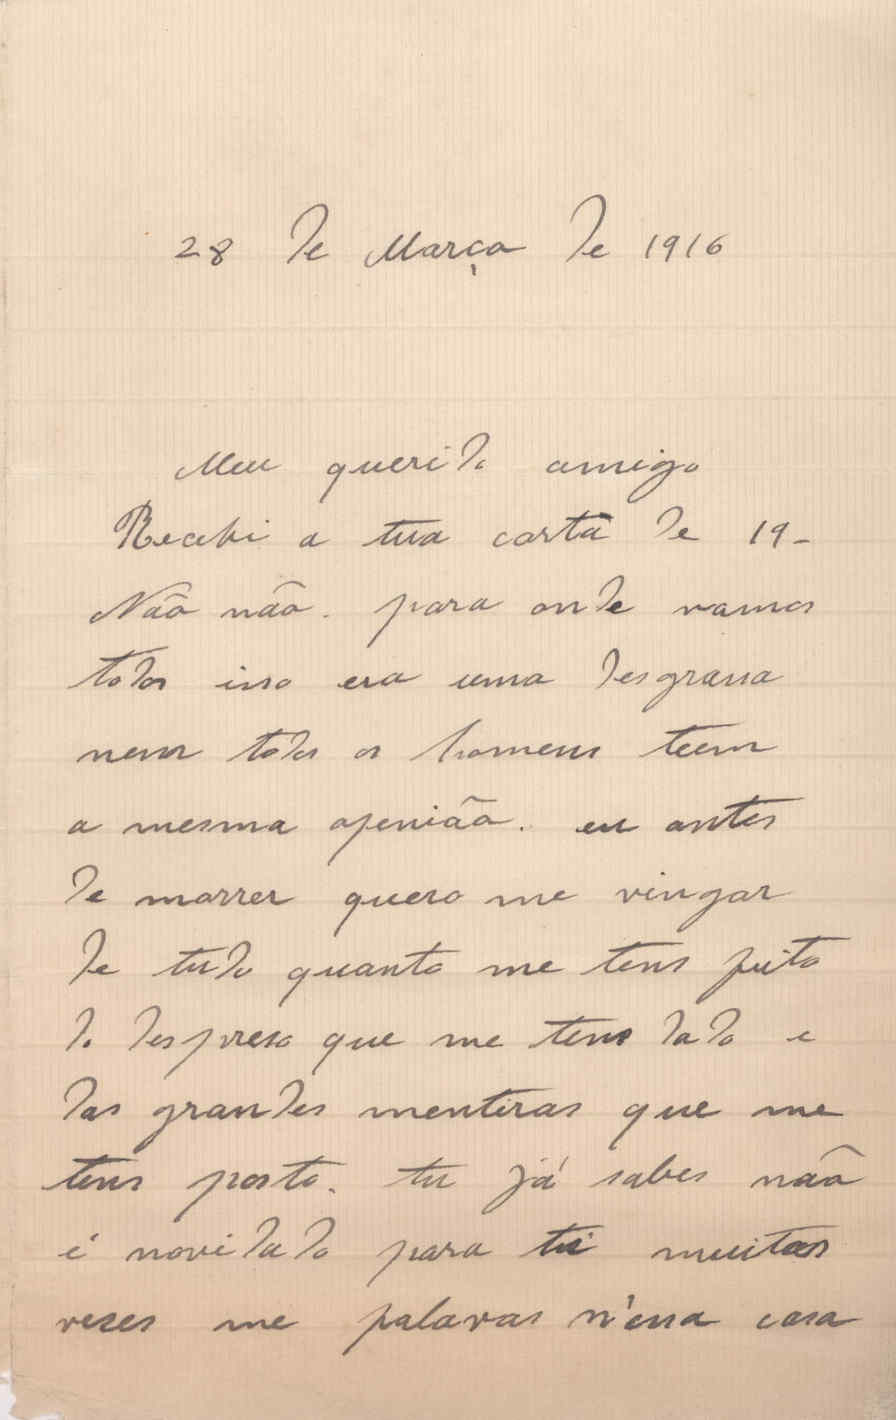 28 de Março de 1916
Meu querido amigo
Recebi a tua carta de 19-
Não não. para onde vamos
todos isso era uma desgrassa
nem todos os homens teem
a mesma openião. eu antes
de morrer quero me vingar
de tudo quanto me tens feito
do despreso que me tens dado e
das grandes mentiras que me
tens posto. tu já sabes não
é novidado para ti muitas
veses me falavas n'essa casa